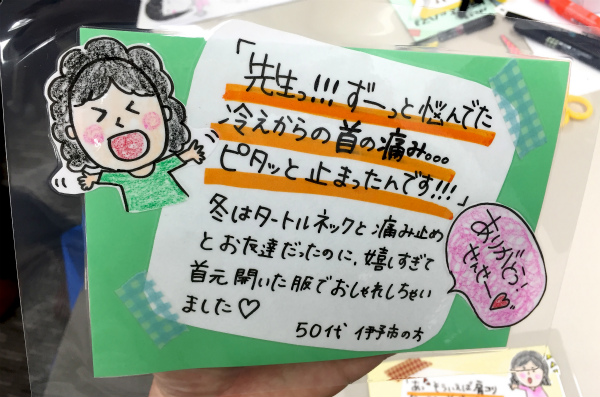 「先生っ!!! ずーっと悩んでた
冷えからの首の痛み。。。
ピタッと止まったんです!!!」
冬はタートルネックと痛み止め
とお友達だったのに、嬉しすぎて
首元開いた服でおしゃれしちゃい
ました♡
50代 伊予市の方
ありがとう!
そういえば肩コリ